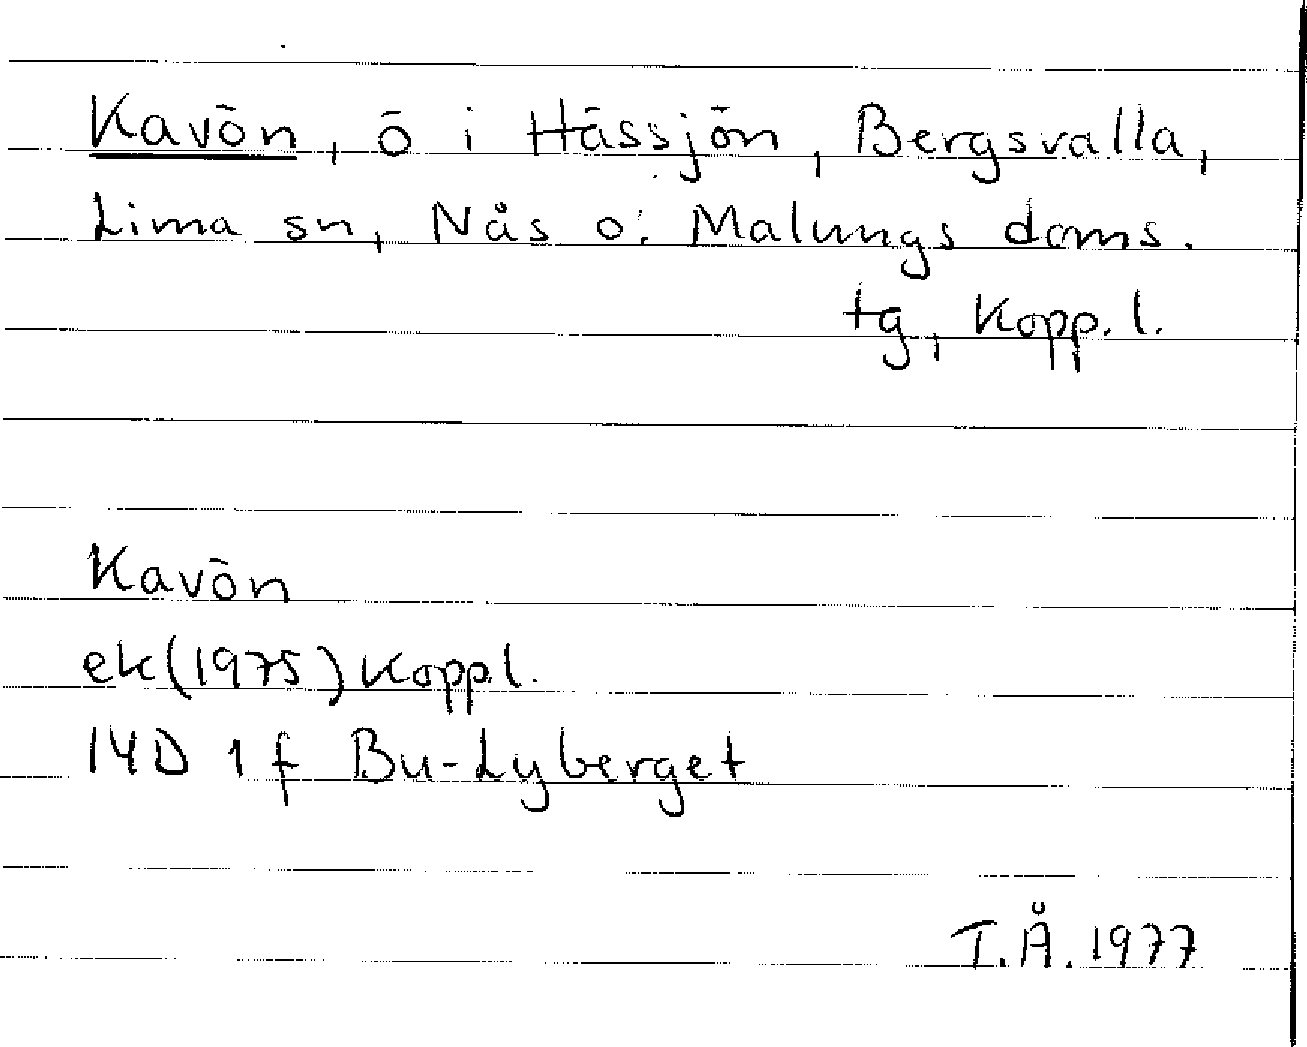 Kavön, ö i Hässjön, Bergsvalla,
Lima sn, Nås o. Malungs doms.
tg, Kopp. l.
Kavön
ek(1975) Kopp.l.
14D 1f Bu-Lyberget
T.Å.1977